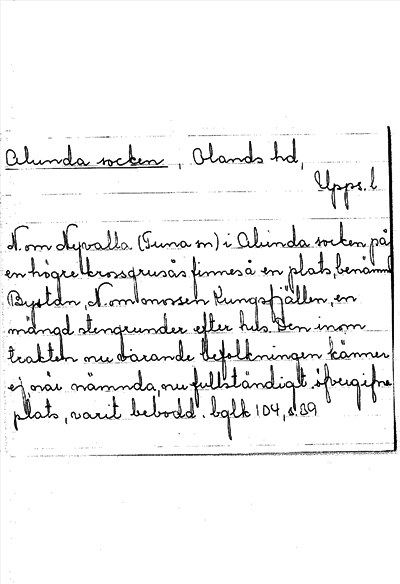 Alunda socken, Olands hd,
Upps. l
N. om Nyvalla (Tuna sn) i Alunda socken på
en högre krossgrusås finnes å en plats, benämnd
Bystan, N. om mossen Kungsfjällen, en
mängd stengrunder efter hus. Den inom
trakten nu varande befolkningen känner
ej, när nämnda, nu fullständigt öfvergifne
plats, varit bebodd. bglk 104, s. 39